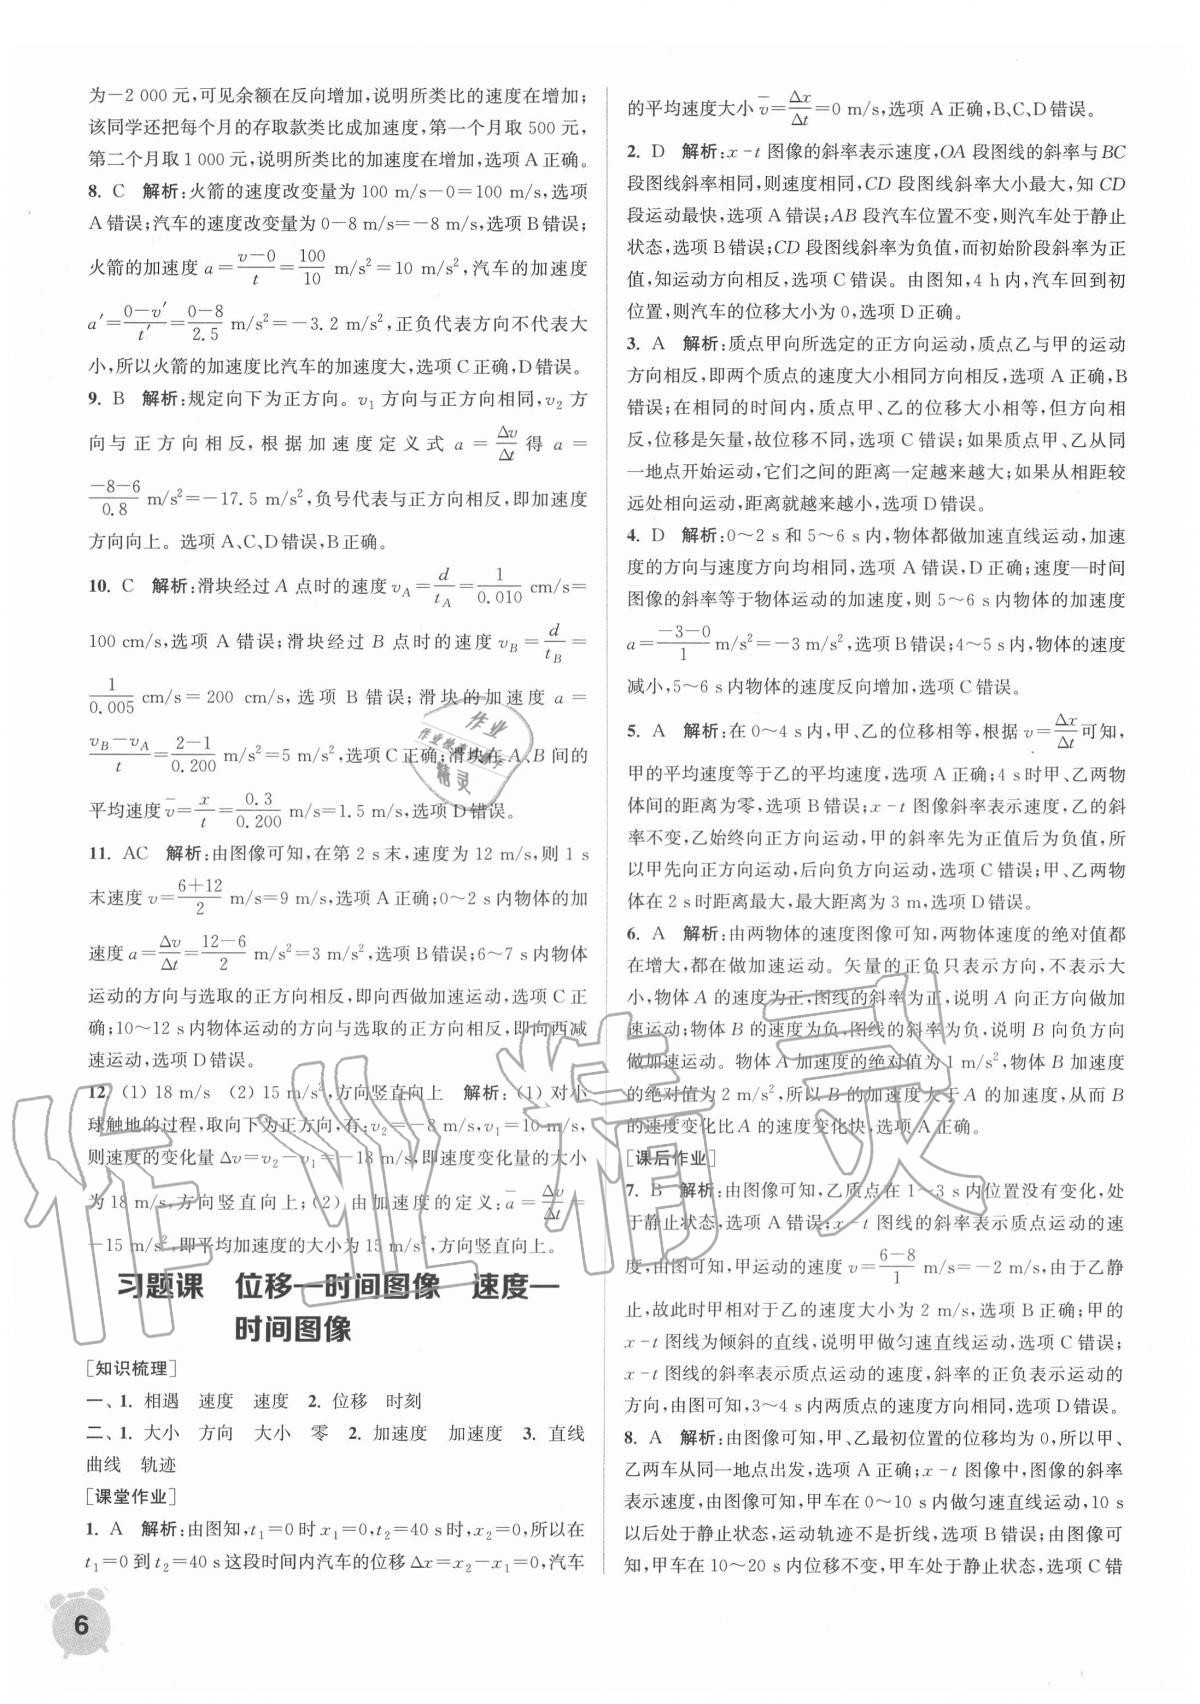 为−2 000 元,可见余额在反向增加,说明所类比的速度在增加;
该同学还把每个月的存取款类比成加速度,第一个月取 500 元,
第二个月取 1 000 元,说明所类比的加速度在增加,选项 A 正确。
8. C 解析:火箭的速度改变量为 100 m/s−0=100 m/s,选项
A 错误;汽车的速度改变量为 0−8 m/s=−8 m/s,选项 B 错误;
火箭的加速度 a=(v−0)/t=100/10 m/s²=10 m/s²,汽车的加速度
a′=(0−v′)/t′=(0−8)/2.5 m/s²=−3.2 m/s²,正负代表方向不代表大
小,所以火箭的加速度比汽车的加速度大,选项 C 正确,D 错误。
9. B 解析:规定向下为正方向。v₁ 方向与正方向相同,v₂ 方
向与正方向相反,根据加速度定义式 a=Δv/Δt 得 a=
(−8−6)/0.8 m/s²=−17.5 m/s²,负号代表与正方向相反,即加速度
方向向上。选项 A、C、D 错误,B 正确。
10. C 解析:滑块经过 A 点时的速度 v_A=d/t_A=1/0.010 cm/s=
100 cm/s,选项 A 错误;滑块经过 B 点时的速度 v_B=d/t_B=
1/0.005 cm/s=200 cm/s,选项 B 错误;滑块的加速度 a=
(v_B−v_A)/t=(2−1)/0.200 m/s²=5 m/s²,选项 C 正确;滑块在 A、B 间的
平均速度 v̄=x/t=0.3/0.200 m/s=1.5 m/s,选项 D 错误。
11. AC 解析:由图像可知,在第 2 s 末,速度为 12 m/s,则 1 s
末速度 v=(6+12)/2 m/s=9 m/s,选项 A 正确;0～2 s 内物体的加
速度 a=Δv/Δt=(12−6)/2 m/s²=3 m/s²,选项 B 错误;6～7 s 内物体
运动的方向与选取的正方向相反,即向西做加速运动,选项 C 正
确;10～12 s 内物体运动的方向与选取的正方向相反,即向西减
速运动,选项 D 错误。
12. (1) 18 m/s (2) 15 m/s²,方向竖直向上 解析:(1) 对小
球触地的过程,取向下为正方向,有:v₂=−8 m/s,v₁=10 m/s,
则速度的变化量 Δv=v₂−v₁=−18 m/s,即速度变化量的大小
为 18 m/s,方向竖直向上;(2) 由加速度的定义:ā=Δv/Δt=
−15 m/s²,即平均加速度的大小为 15 m/s²,方向竖直向上。
习题课 位移—时间图像 速度—
时间图像
[知识梳理]
一、1. 相遇 速度 速度 2. 位移 时刻
二、1. 大小 方向 大小 零 2. 加速度 加速度 3. 直线
曲线 轨迹
[课堂作业]
1. A 解析:由图知,t₁=0 时 x₁=0,t₂=40 s 时,x₂=0,所以在
t₁=0 到 t₂=40 s 这段时间内汽车的位移 Δx=x₂−x₁=0,汽车
的平均速度大小 v̄=Δx/Δt=0 m/s,选项 A 正确,B、C、D 错误。
2. D 解析:x-t 图像的斜率表示速度,OA 段图线的斜率与 BC
段图线斜率相同,则速度相同,CD 段图线斜率大小最大,知 CD
段运动最快,选项 A 错误;AB 段汽车位置不变,则汽车处于静止
状态,选项 B 错误;CD 段图线斜率为负值,而初始阶段斜率为正
值,知运动方向相反,选项 C 错误。由图知,4 h 内,汽车回到初
位置,则汽车的位移大小为 0,选项 D 正确。
3. A 解析:质点甲向所选定的正方向运动,质点乙与甲的运动
方向相反,即两个质点的速度大小相同方向相反,选项 A 正确,B
错误;在相同的时间内,质点甲、乙的位移大小相等,但方向相
反,位移是矢量,故位移不同,选项 C 错误;如果质点甲、乙从同
一地点开始运动,它们之间的距离一定越来越大;如果从相距较
远处相向运动,距离就越来越小,选项 D 错误。
4. D 解析:0～2 s 和 5～6 s 内,物体都做加速直线运动,加速
度的方向与速度方向均相同,选项 A 错误,D 正确;速度—时间
图像的斜率等于物体运动的加速度,则 5～6 s 内物体的加速度
a=(−3−0)/1 m/s²=−3 m/s²,选项 B 错误;4～5 s 内,物体的速度
减小,5～6 s 内物体的速度反向增加,选项 C 错误。
5. A 解析:在 0～4 s 内,甲、乙的位移相等,根据 v=Δx/Δt 可知,
甲的平均速度等于乙的平均速度,选项 A 正确;4 s 时甲、乙两物
体间的距离为零,选项 B 错误;x-t 图像斜率表示速度,乙的斜
率不变,乙始终向正方向运动,甲的斜率先为正值后为负值,所
以甲先向正方向运动,后向负方向运动,选项 C 错误;甲、乙两物
体在 2 s 时距离最大,最大距离为 3 m,选项 D 错误。
6. A 解析:由两物体的速度图像可知,两物体速度的绝对值都
在增大,都在做加速运动。矢量的正负只表示方向,不表示大
小,物体 A 的速度为正,图线的斜率为正,说明 A 向正方向做加
速运动;物体 B 的速度为负,图线的斜率为负,说明 B 向负方向
做加速运动。物体 A 加速度的绝对值为 1 m/s²,物体 B 加速度
的绝对值为 2 m/s²,所以 B 的加速度大于 A 的加速度,从而 B
的速度变化比 A 的速度变化快,选项 A 正确。
[课后作业]
7. B 解析:由图像可知,乙质点在 1～3 s 内位置没有变化,处
于静止状态,选项 A 错误;x-t 图线的斜率表示质点运动的速
度,由图可知,甲运动的速度为 (6−8)/1 m/s=−2 m/s,由于乙静
止,故此时甲相对于乙的速度大小为 2 m/s,选项 B 正确;甲的
x-t 图线为倾斜的直线,说明甲做匀速直线运动,选项 C 错误;
x-t 图线的斜率表示质点运动的速度,斜率的正负表示运动的
方向,由图可知,3～4 s 内两质点速度方向相同,选项 D 错误。
8. A 解析:由图像可知,甲、乙最初位置的位移均为 0,所以甲、
乙两车从同一地点出发,选项 A 正确;x-t 图像中,图像的斜率
表示速度,由图像可知,甲车在 0～10 s 内做匀速直线运动,10 s
以后处于静止状态,运动轨迹不是折线,选项 B 错误;由图像可
知,甲车在 10～20 s 内位移不变,甲车处于静止状态,选项 C 错
6
作业精灵